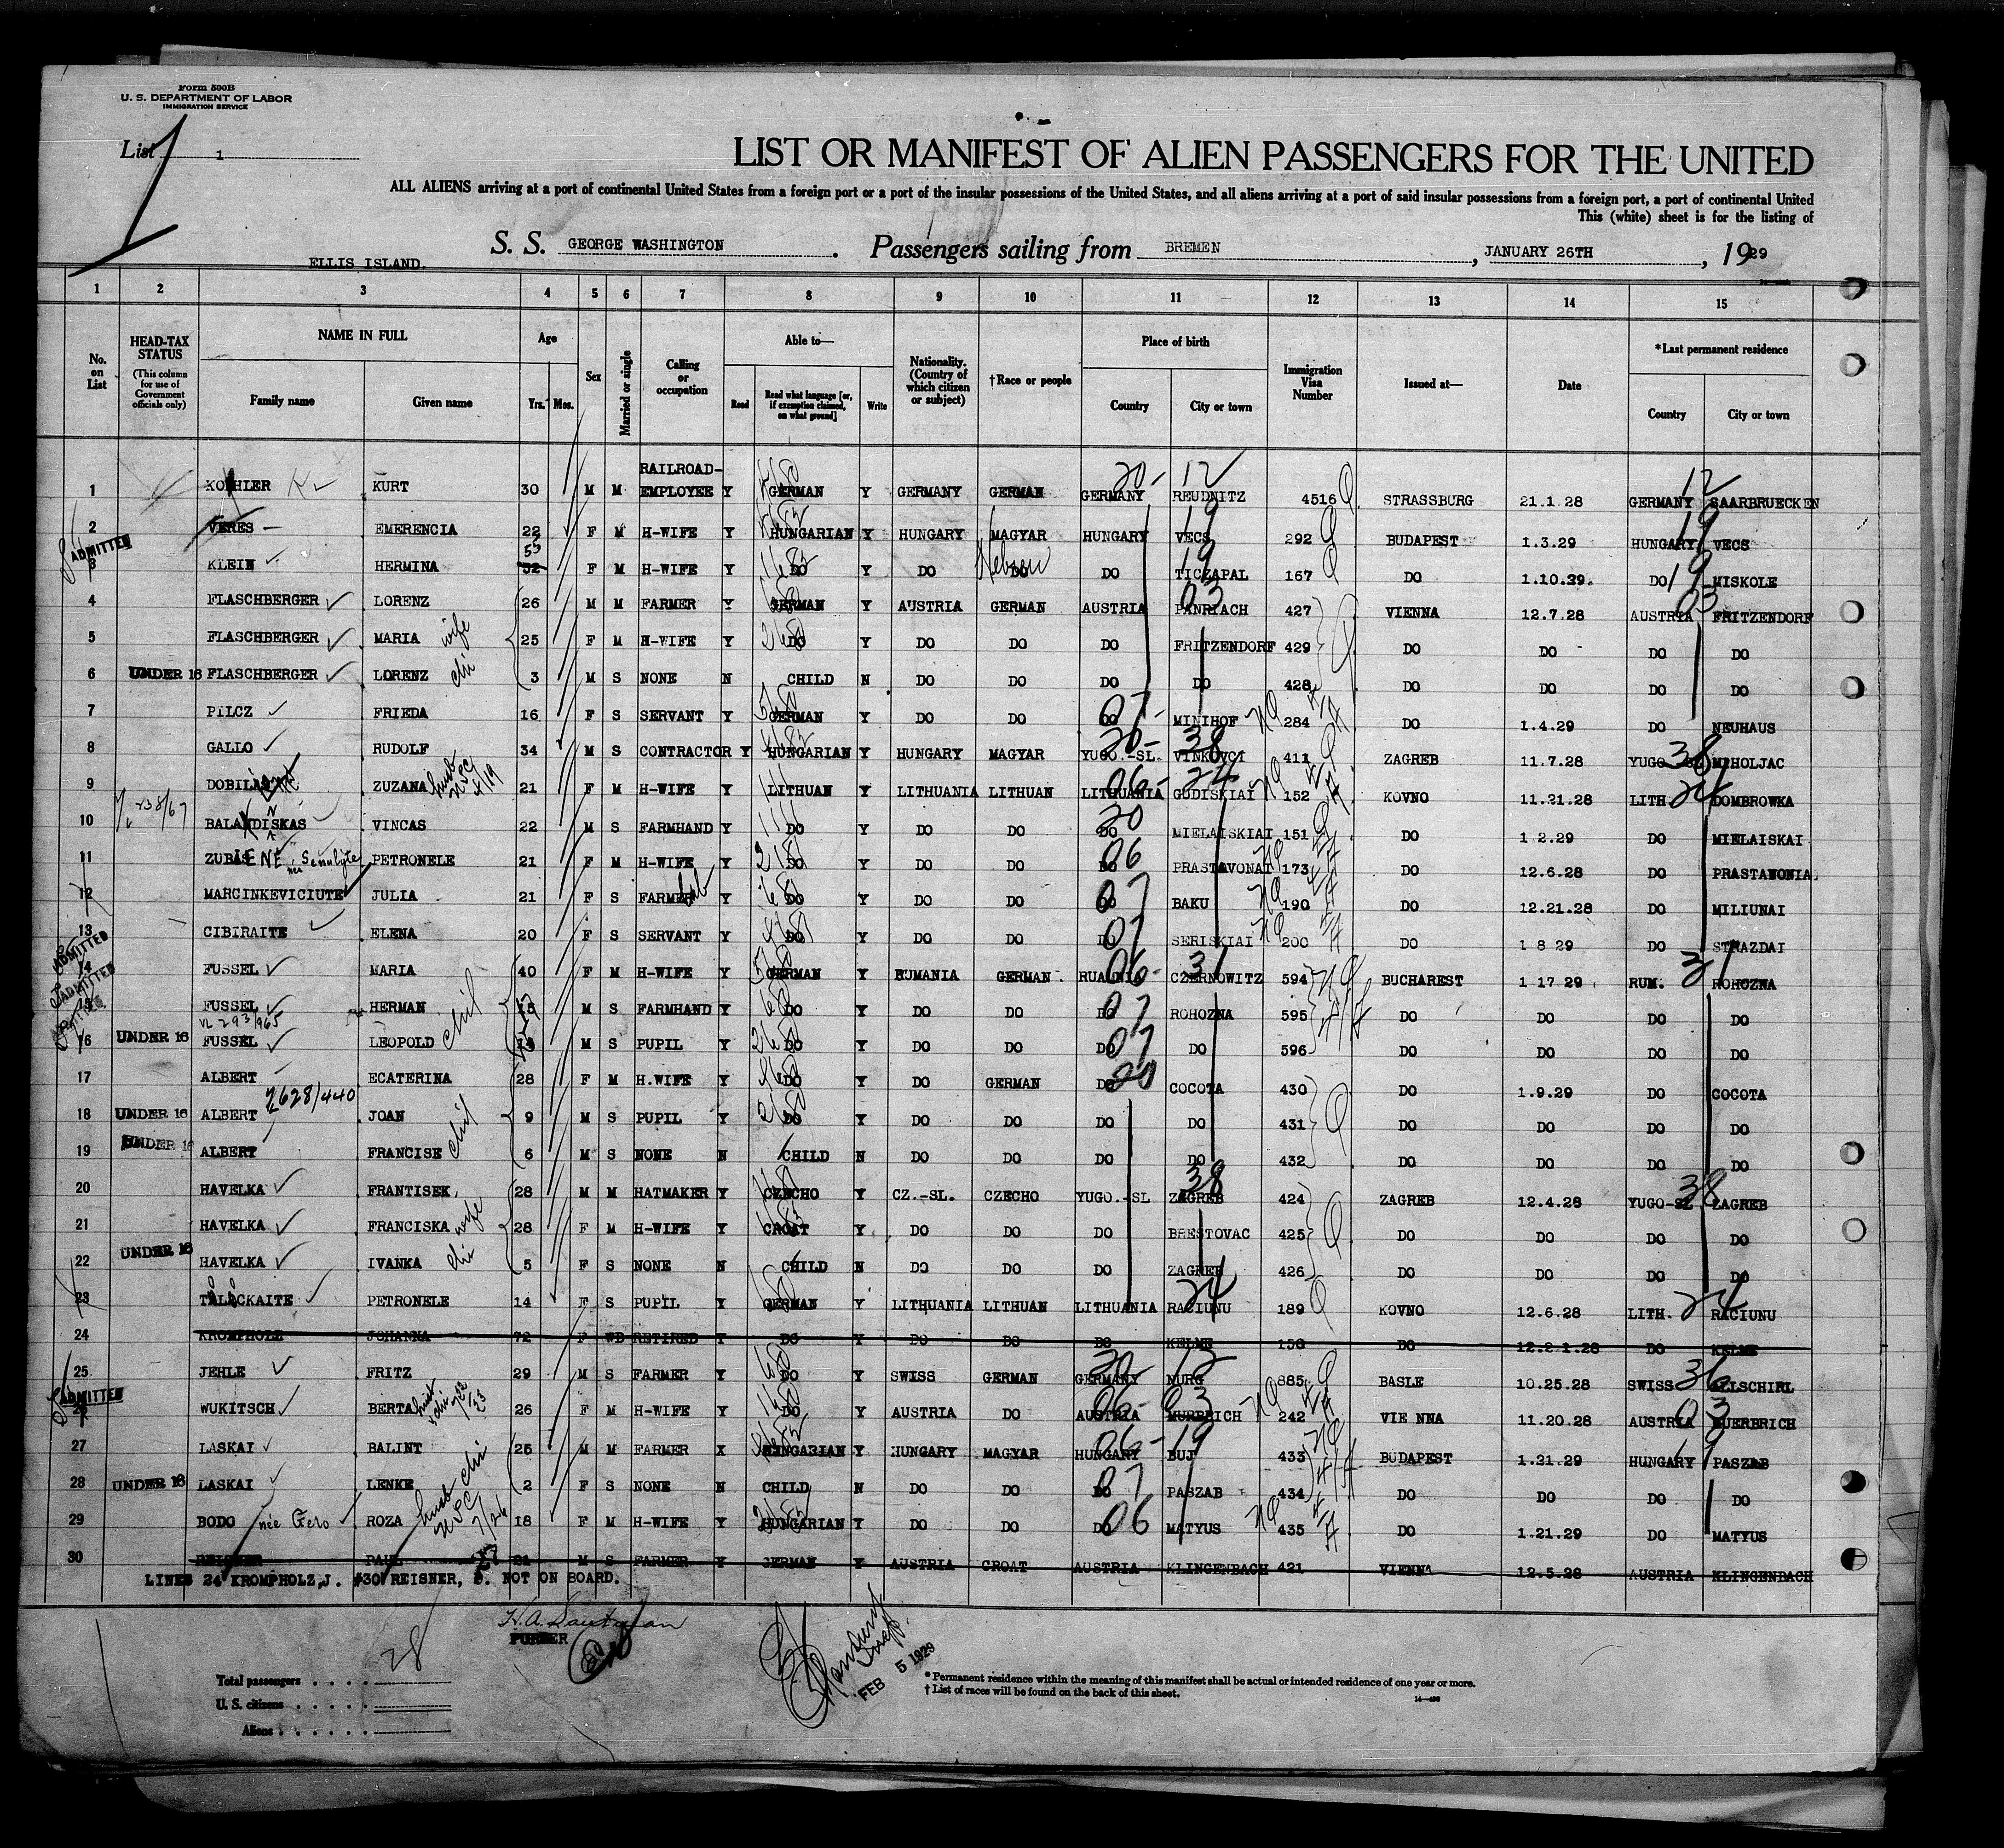 Form 500B
U. S. DEPARTMENT OF LABOR
IMMIGRATION SERVICE
List 1
1
LIST OR MANIFEST OF ALIEN PASSENGERS FOR THE UNITED
ALL ALIENS arriving at a port of continental United States from a foreign port or a port of the insular possessions of the United States, and all aliens arriving at a port of said insular possessions from a foreign port, a port of continental United
This (white) sheet is for the listing of
S. S. GEORGE WASHINGTON. Passengers sailing from BREMEN, JANUARY 26TH, 1929
ELLIS ISLAND.
1 2 3 4 5 6 7 8 9 10 11 12 13 14 15
No. on List
HEAD-TAX STATUS (This column for use of Government officials only)
NAME IN FULL Family name Given name
Age Yrs. Mos.
Sex
Married or single
Calling or occupation
Able to— Read Read what language [or, if exemption claimed, on what ground] Write
Nationality. (Country of which citizen or subject)
†Race or people
Place of birth Country City or town
Immigration Visa Number
Issued at—
Date
*Last permanent residence Country City or town
1 KOEHLER KURT 30 M M RAILROAD-EMPLOYEE Y GERMAN Y GERMANY GERMAN GERMANY REUDNITZ 4516 STRASSBURG 21.1.28 GERMANY SAARBRUECKEN
2 VERES EMERENCIA 22 F M H-WIFE Y HUNGARIAN Y HUNGARY MAGYAR HUNGARY VECS 292 BUDAPEST 1.3.29 HUNGARY VECS
ADMITTED 3 KLEIN HERMINA 52 53 F M H-WIFE Y DO Y DO DO Hebrew DO TICZAPAL 167 DO 1.10.29. DO MISKOLE
4 FLASCHBERGER LORENZ 26 M M FARMER Y GERMAN Y AUSTRIA GERMAN AUSTRIA PANRIACH 427 VIENNA 12.7.28 AUSTRIA FRITZENDORF
5 FLASCHBERGER MARIA wife 25 F M H-WIFE Y DO Y DO DO DO FRITZENDORF 429 DO DO DO DO
6 UNDER 16 FLASCHBERGER LORENZ chi 3 M S NONE N CHILD N DO DO DO DO 428 DO DO DO DO
7 PILCZ FRIEDA 16 F S SERVANT Y GERMAN Y DO DO DO MINIHOF 284 DO 1.4.29 DO NEUHAUS
8 GALLO RUDOLF 34 M S CONTRACTOR Y HUNGARIAN Y HUNGARY MAGYAR YUGO.-SL. VINKOVCI 411 ZAGREB 11.7.28 YUGO-SL MIHOLJAC
9 ZUZANA 21 F M H-WIFE Y LITHUAN Y LITHUANIA LITHUAN LITHUANIA GUDISKIAI 152 KOVNO 11.21.28 LITH. DOMBROWKA
10 BALANDISKAS VINCAS 22 M S FARMHAND Y DO Y DO DO DO MIELAISKIAI 151 DO 1 2.29 DO MIELAISKAI
11 PETRONELE 21 F M H-WIFE Y DO Y DO DO DO PRASTAVONAI 173 DO 12.6.28 DO PRASTAWONIA.
12 MARCINKEVICIUTE JULIA 21 F S FARMER Y DO Y DO DO DO BAKU 190 DO 12.21.28 DO MILIUNAI
13 CIBIRAITE ELENA 20 F S SERVANT Y DO Y DO DO DO SERISKIAI 200 DO 1 8 29 DO STRAZDAI
ADMITTED 14 FUSSEL MARIA 40 F M H-WIFE Y GERMAN Y RUMANIA GERMAN CZERNOWITZ 594 BUCHAREST 1 17 29 RUM. ROHOZNA
ADMITTED 15 FUSSEL HERMAN chil 15 M S FARMHAND Y DO Y DO DO DO ROHOZNA 595 DO DO DO DO
16 UNDER 16 FUSSEL LEOPOLD M S PUPIL Y DO Y DO DO DO DO 596 DO DO DO DO
17 ALBERT ECATERINA 28 F M H.WIFE Y DO Y DO GERMAN DO COCOTA 430 DO 1.9.29 DO COCOTA
2628/440
18 UNDER 16 ALBERT JOAN chil 9 M S PUPIL Y DO Y DO DO DO DO 431 DO DO DO DO
19 UNDER 16 ALBERT FRANCISE 6 M S NONE N CHILD N DO DO DO DO 432 DO DO DO DO
20 HAVELKA FRANTISEK, 28 M M HATMAKER Y CZECHO Y CZ.-SL. CZECHO YUGO.-SL ZAGREB 424 ZAGREB 12.4.28 YUGO-SL ZAGREB
21 HAVELKA FRANCISKA wife 28 F M H-WIFE Y CROAT Y DO DO DO BRESTOVAC 425 DO DO DO DO
22 UNDER 16 HAVELKA IVANKA chi 5 F S NONE N CHILD N DO DO DO ZAGREB 426 DO DO DO DO
23 PETRONELE 14 F S PUPIL Y GERMAN Y LITHUANIA LITHUAN LITHUANIA RACIUNU 189 KOVNO 12.6.28 LITH. RACIUNU
24 KROMPHOLZ JOHANNA 72 F WD RETIRED Y DO Y DO DO DO KELME 156 DO 12.21.28 DO KELME
25 JEHLE FRITZ 29 M S FARMER Y DO Y SWISS GERMAN GERMANY NURG 885 BASLE 10.25.28 SWISS ALLSCHIRL
ADMITTED 26 WUKITSCH BERTA 26 F M H-WIFE Y DO Y AUSTRIA DO AUSTRIA MURBRICH 242 VIE NNA 11.20.28 AUSTRIA MUERBRICH
27 LASKAI BALINT 25 M M FARMER X HUNGARIAN Y HUNGARY MAGYAR HUNGARY BUJ 433 BUDAPEST 1.21.29 HUNGARY PASZAB
28 UNDER 16 LASKAI LENKE chi 2 F S NONE N CHILD N DO DO DO PASZAB 434 DO DO DO DO
29 BODO née Gero ROZA 18 F M H-WIFE Y HUNGARIAN Y DO DO DO MATYUS 435 DO 1.21.29 DO MATYUS
30 REISNER PAUL 21 M S FARMER Y GERMAN Y AUSTRIA CROAT AUSTRIA KLINGENBACH 421 VIENNA 12.5.28 AUSTRIA KLINGENBACH
LINES 24 KROMPHOLZ,J. #30 REISNER, P. NOT ON BOARD.
PURSER
FEB 5 1929
Total passengers . . . . 28
U. S. citizens . . . . .
Aliens . . . . . .
* Permanent residence within the meaning of this manifest shall be actual or intended residence of one year or more.
† List of races will be found on the back of this sheet.